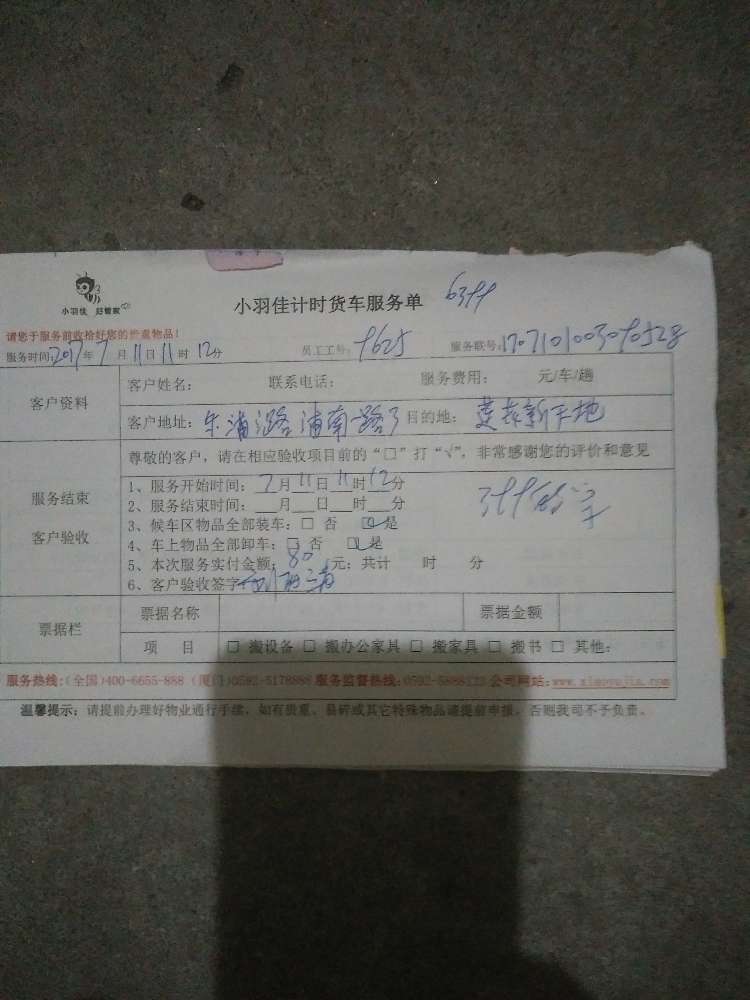 小羽佳 好管家
小羽佳计时货车服务单
请您于服务前收拾好您的贵重物品!
服务时间:2017年7月11日11时12分 员工工号: 9625 服务联号:
客户资料
客户姓名: 联系电话: 服务费用: 元/车/趟
客户地址: 浦南路 目的地: 新天地
服务结束
客户验收
尊敬的客户,请在相应验收项目前的“□”打“√”,非常感谢您的评价和意见
1、服务开始时间: 7月11日11时12分
2、服务结束时间:___月___日___时___分
3、候车区物品全部装车:□ 否 □ 是
4、车上物品全部卸车:□ 否 □ 是
5、本次服务实付金额: 80 元;共计 时 分
6、客户验收签字
票据栏
票据名称 票据金额
项 目 □ 搬设备 □ 搬办公家具 □ 搬家具 □ 搬书 □ 其他:
服务热线:(全国)400-6655-888 (厦门)0592-5178888 服务监督热线:0592-5888123 公司网站:www.xiaoyujia.com
温馨提示:请提前办理好物业通行手续,如有贵重、易碎或其它特殊物品请提前申报,否则我司不予负责。